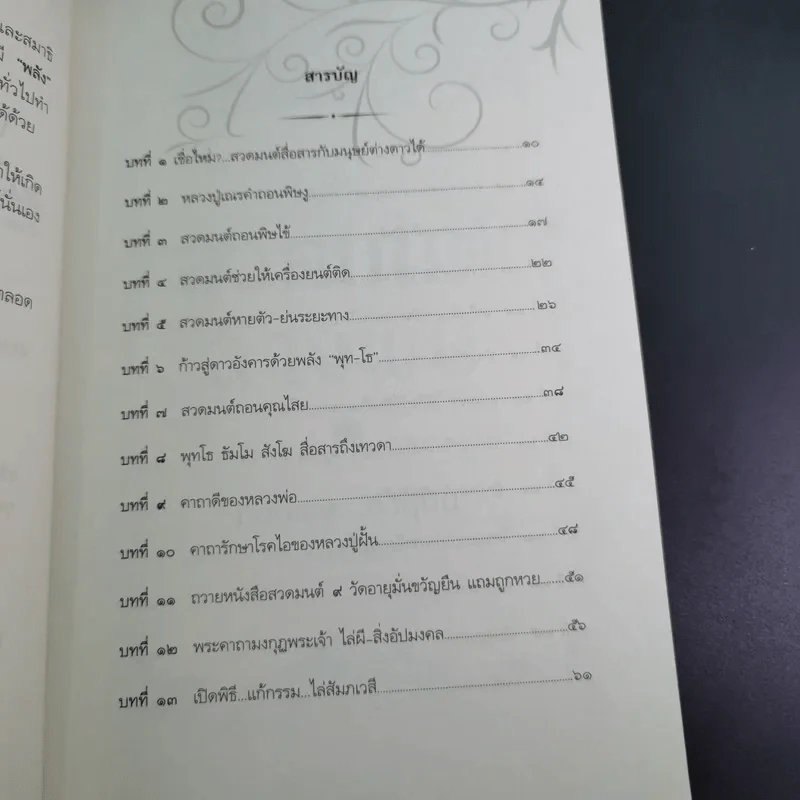 และสมาธิ
"พลัง"
ทั่วไปทำ
ได้ด้วย
าให้เกิด
นั่นเอง
ตลอด
สารบัญ
บทที่ ๑ เชื่อไหม?...สวดมนต์สื่อสารกับมนุษย์ต่างดาวได้ ๑๐
บทที่ ๒ หลวงปู่เณรคำถอนพิษงู ๑๔
บทที่ ๓ สวดมนต์ถอนพิษไข้ ๑๗
บทที่ ๔ สวดมนต์ช่วยให้เครื่องยนต์ติด ๒๒
บทที่ ๕ สวดมนต์หายตัว-ย่นระยะทาง ๒๖
บทที่ ๖ ก้าวสู่ดาวอังคารด้วยพลัง "พุท-โธ" ๓๔
บทที่ ๗ สวดมนต์ถอนคุณไสย ๓๘
บทที่ ๘ พุทโธ ธัมโม สังโฆ สื่อสารถึงเทวดา ๔๒
บทที่ ๙ คาถาดีของหลวงพ่อ ๔๕
บทที่ ๑๐ คาถารักษาโรคไอของหลวงปู่ฝั้น ๔๘
บทที่ ๑๑ ถวายหนังสือสวดมนต์ ๙ วัดอายุมั่นขวัญยืน แถมถูกหวย ๕๑
บทที่ ๑๒ พระคาถามงกุฎพระเจ้า ไล่ผี-สิ่งอัปมงคล ๕๖
บทที่ ๑๓ เปิดพิธี...แก้กรรม...ไล่สัมภเวสี ๖๑